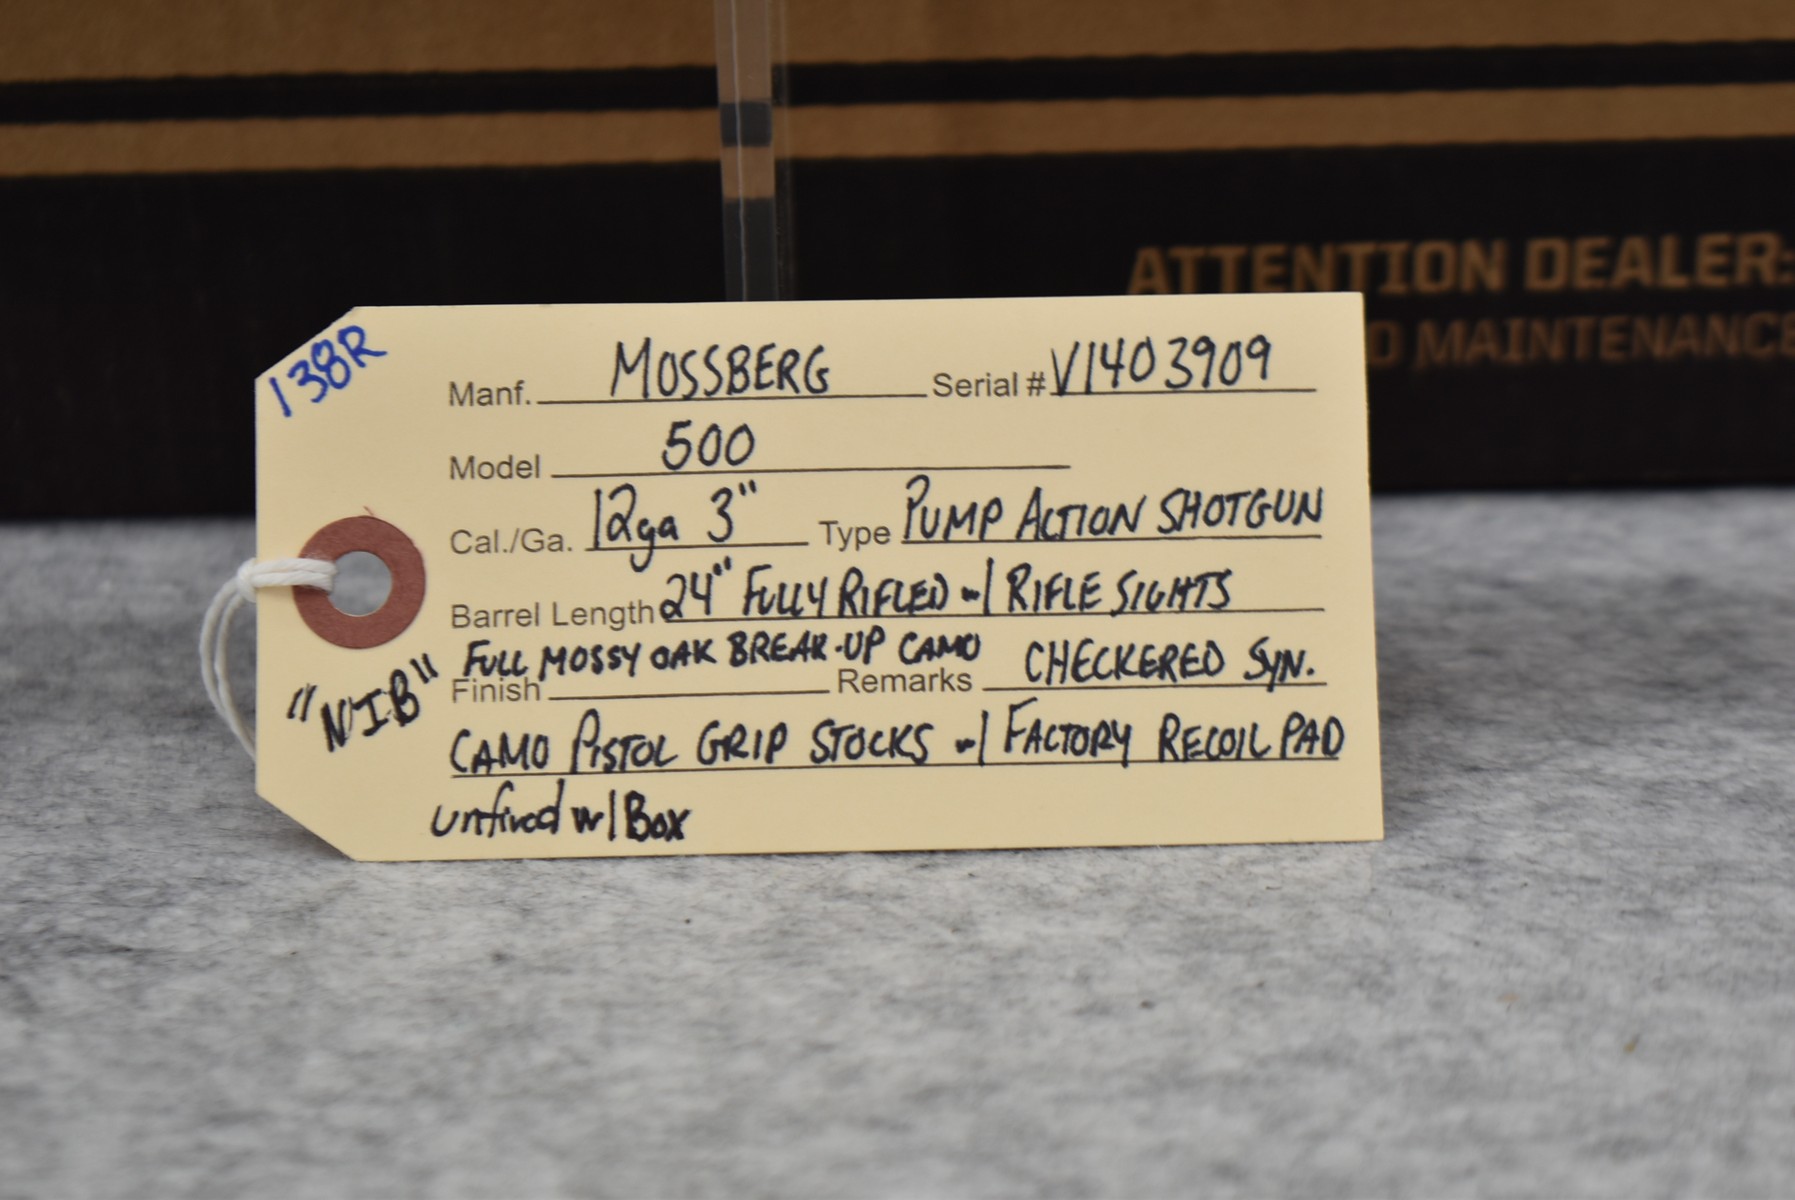 ATTENTION DEALER:
MAINTENANCE
138R
Manf. MOSSBERG Serial # V1403909
Model 500
Cal./Ga. 12ga 3" Type PUMP ACTION SHOTGUN
Barrel Length 24" FULLY RIFLED w/ RIFLE SIGHTS
"NIB"
FULL MOSSY OAK BREAK-UP CAMO
Finish Remarks CHECKERED SYN.
CAMO PISTOL GRIP STOCKS w/ FACTORY RECOIL PAD
unfired w/ Box